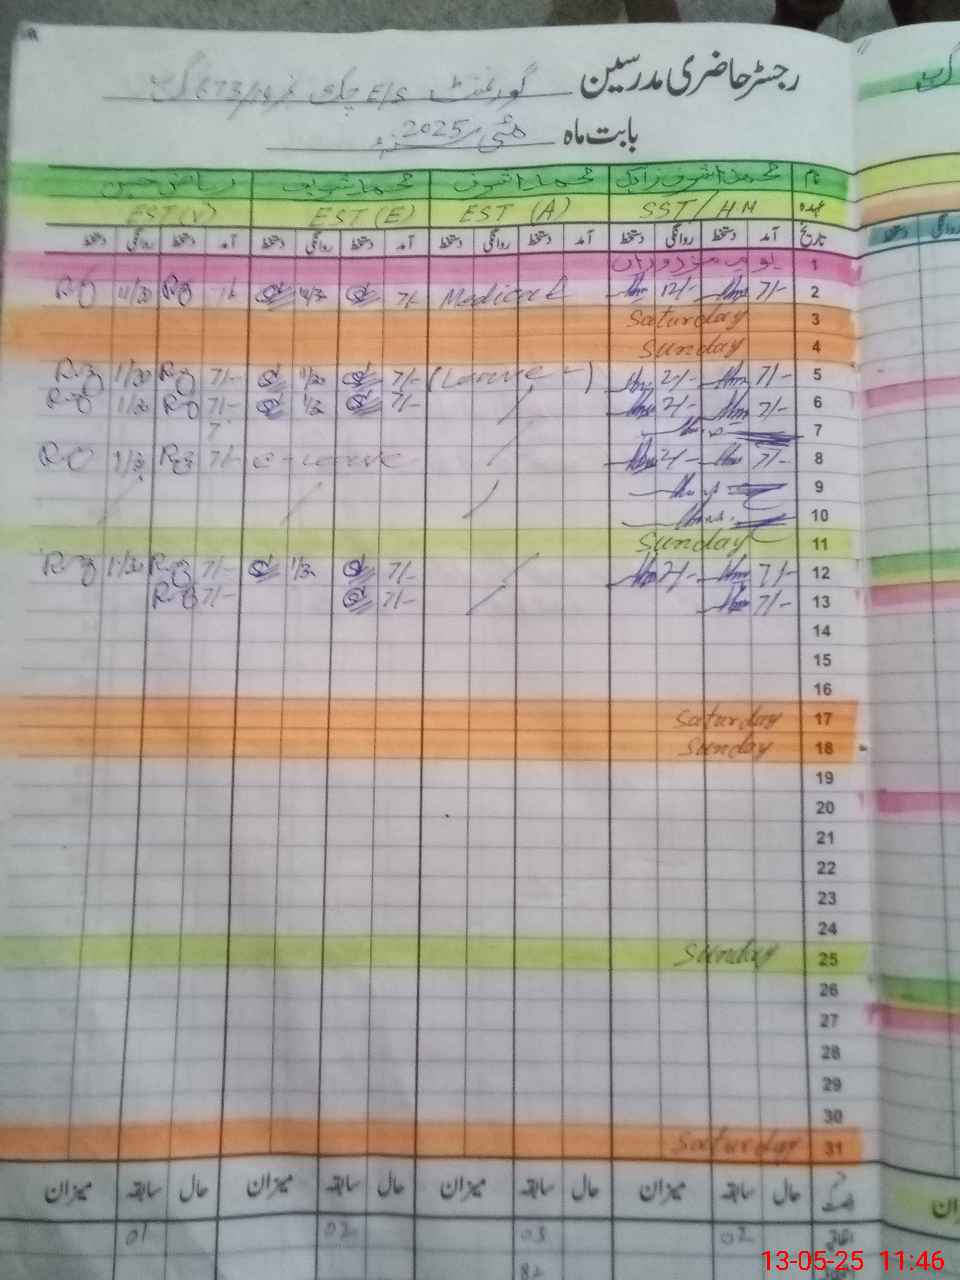 رجسٹر حاضری مدرسین گورنمنٹ E/S چک نمبر 673/ گ ب
بابت ماہ مئی 2025ء
نام محمد اشرف زاہد محمد اشرف محمد شریف ریاض حسین
عہدہ SST/HM EST (A) EST (E) EST (V)
تاریخ آمد دستخط روانگی دستخط آمد دستخط روانگی دستخط آمد دستخط روانگی دستخط آمد دستخط روانگی دستخط
1 یوم مزدوراں
2 7/- 12/- Medical 7/-
3 Saturday
4 Sunday
5 7/- 2/- (Leave -) 7/- 1/30 7/- 1/30
6 7/- 2/- 7/- 7/- 1/30
7
8 7/- 2/- c-leave 7/-
9
10
11 Sunday
12 7/- 2/- 7/- 1/30 7/- 1/30
13 7/- 7/- 7/-
14
15
16
17 Saturday
18 Sunday
19
20
21
22
23
24
25 Sunday
26
27
28
29
30
31 Saturday
حال سابقہ میزان حال سابقہ میزان حال سابقہ میزان حال سابقہ میزان
اتفاقیہ 02 03 02 01
82
13-05-25 11:46